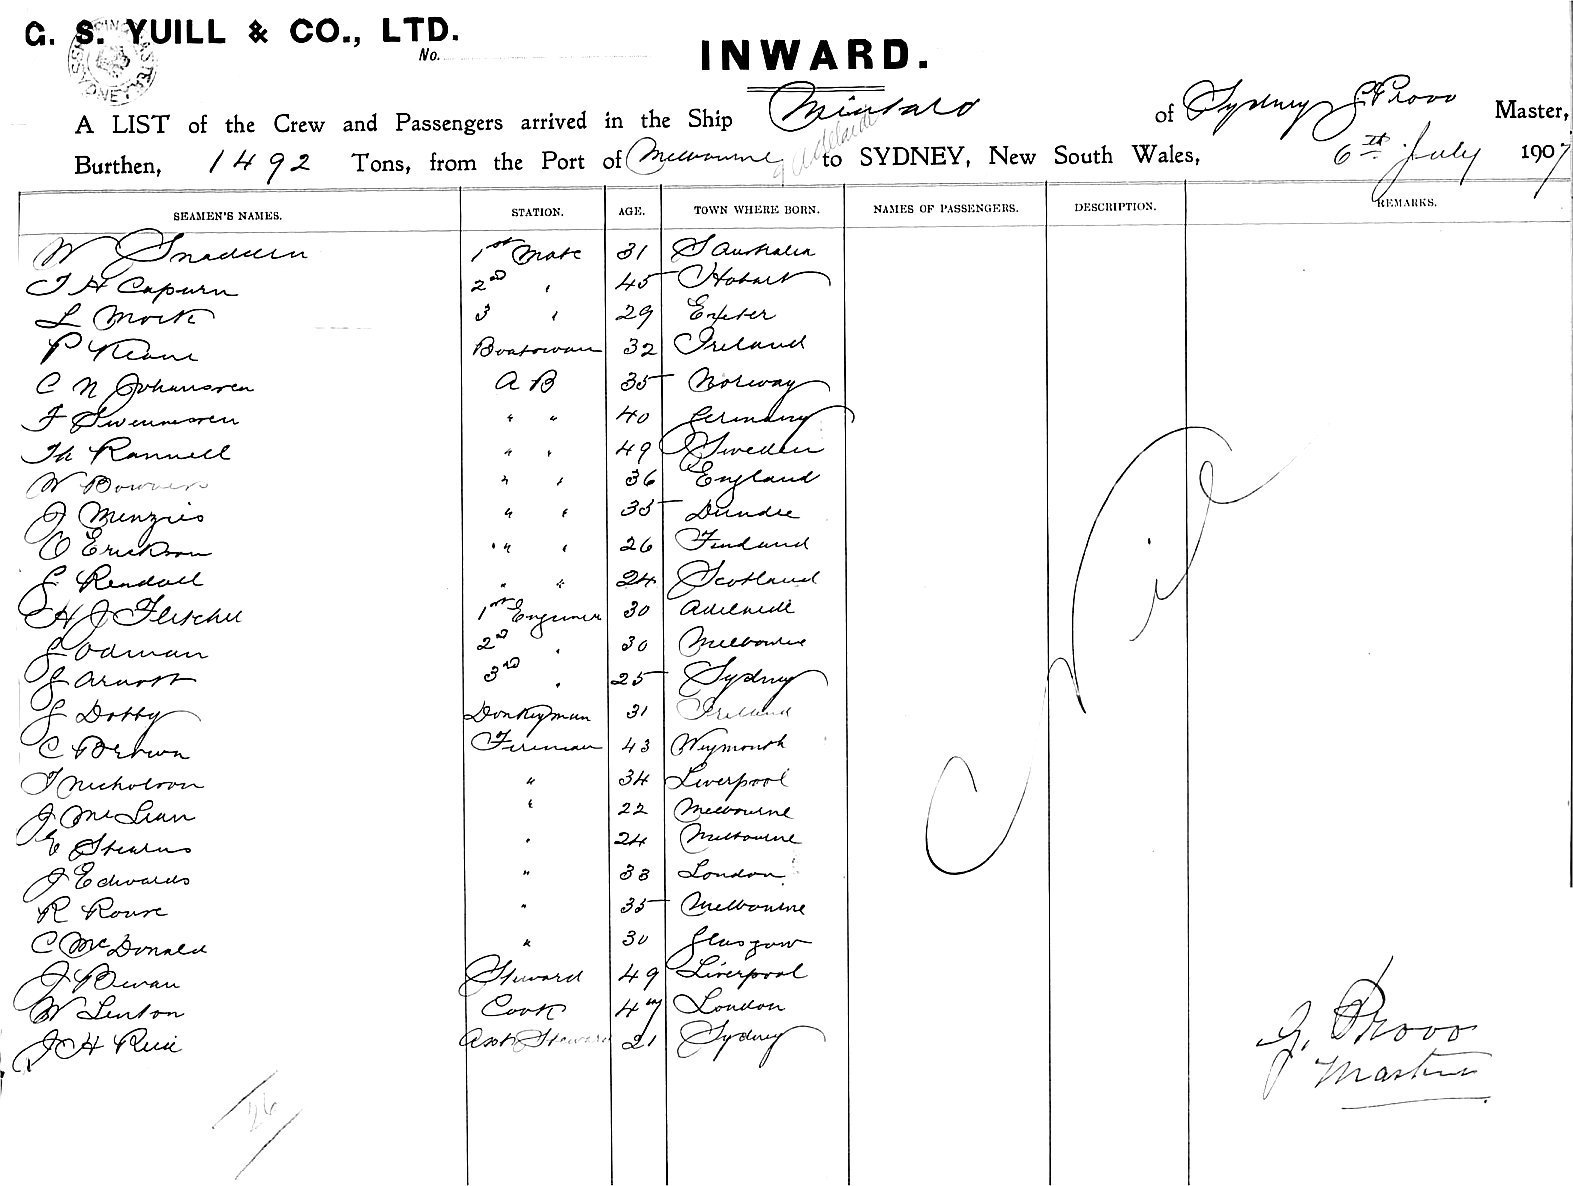 G. S. YUILL & CO., LTD.
No.
INWARD.
A LIST of the Crew and Passengers arrived in the Ship Mintaro of Sydney J Provo Master,
Burthen, 1492 Tons, from the Port of Melbourne & Adelaide to SYDNEY, New South Wales, 6th July 1907
SEAMEN'S NAMES. STATION. AGE. TOWN WHERE BORN. NAMES OF PASSENGERS. DESCRIPTION. REMARKS.
W Snadden 1st Mate 31 S Australia
T H Capurn 2nd " 45 Hobart
L Mock 3 " 29 Exeter
P Keane Boatswain 32 Ireland
C N Johanssen A B 35 Norway
F Swennesen " " 40 Germany
Th Rannell " " 49 Sweden
W Bowners " " 36 England
J Menzies " " 35 Dundee
O Erickson " " 26 Finland
J Rendall " " 24 Scotland
H J Fletcher 1st Engineer 30 Adelaide
J Odman 2nd " 30 Melbourne
J Arnott 3rd " 25 Sydney
J Dobby Donkeyman 31 Ireland
C Brown Fireman 43 Weymouth
T Nicholson " 34 Liverpool
J McLean " 22 Melbourne
E Stearns " 24 Melbourne
J Edwards " 33 London
R Rouse " 35 Melbourne
C McDonald " 30 Glasgow
J Bevan Steward 49 Liverpool
W Lenton Cook 47 London
J H Reid Asst Steward 21 Sydney
Nil
J. Provo
Master
26